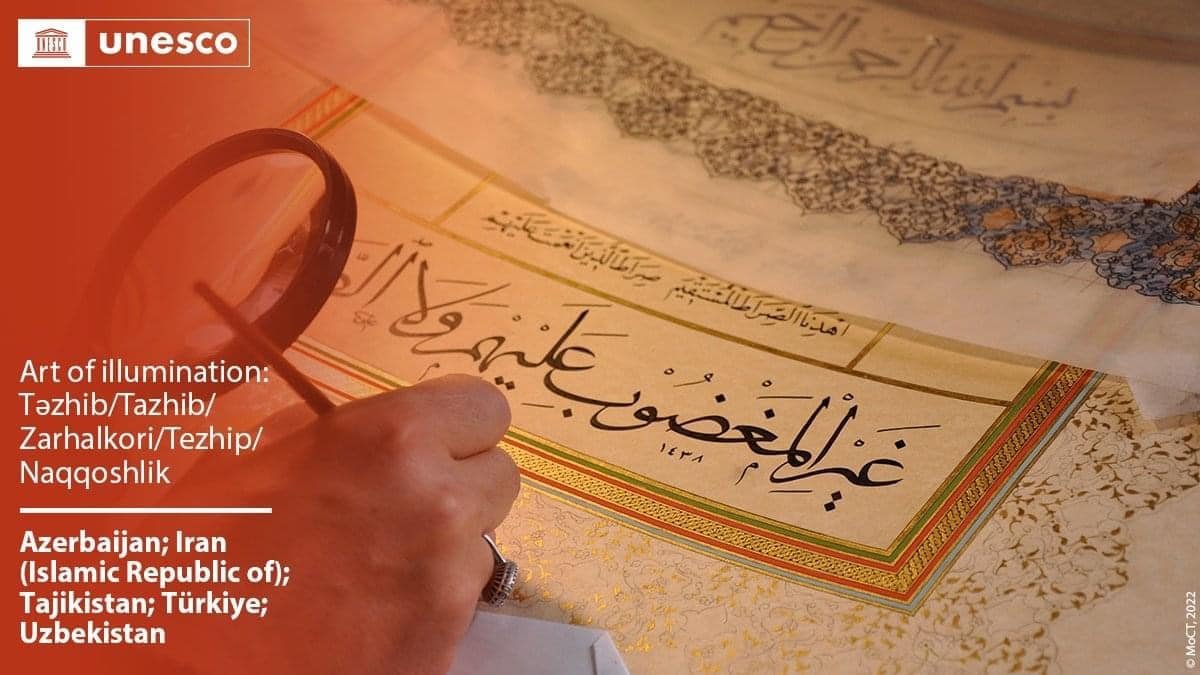 unesco
UNESCO
بسم الله الرحمن الرحيم
اهدنا الصراط المستقيم صراط الذين انعمت عليهم
غَيْرِ الْمَغْضُوبِ عَلَيْهِمْ وَلَا
١٤٣٨
Art of illumination:
Təzhib/Tazhib/
Zarhalkori/Tezhip/
Naqqoshlik
Azerbaijan; Iran
(Islamic Republic of);
Tajikistan; Türkiye;
Uzbekistan
© MoCT, 2022